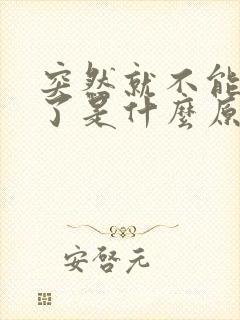 突然就不能
了是什麼原
安啓元